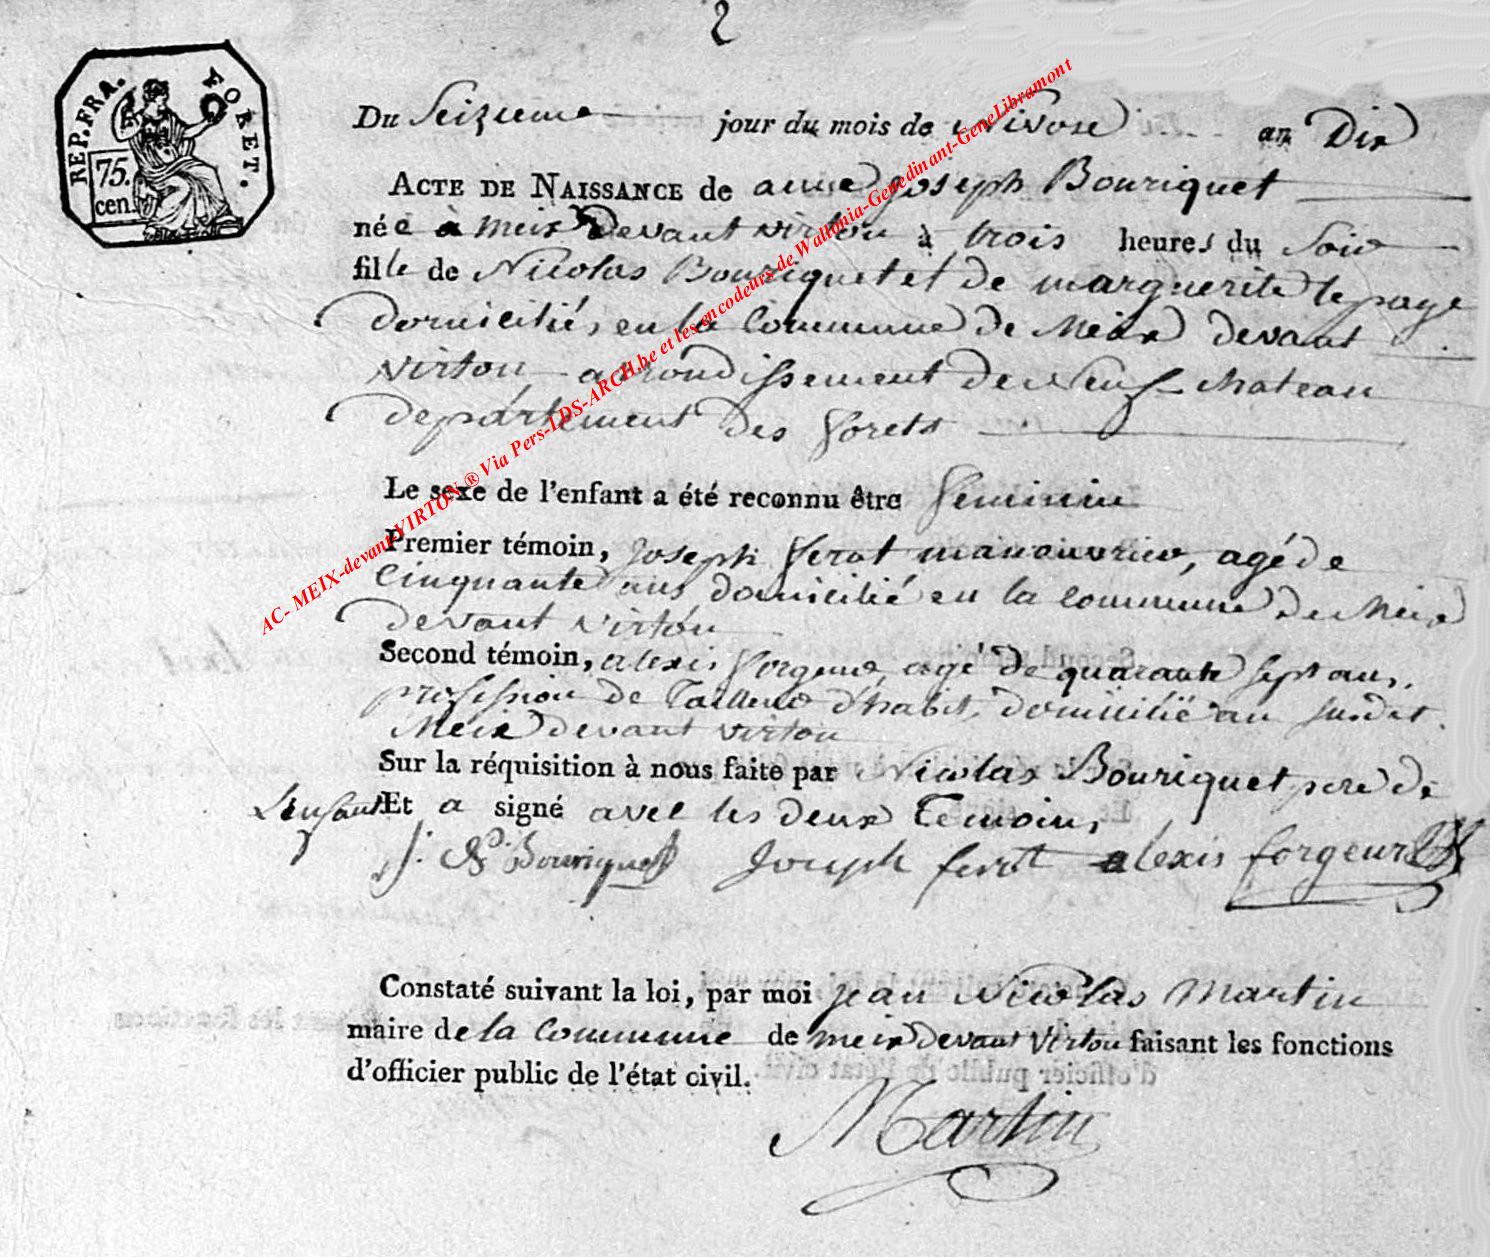 2
REP. FRA. FORET.
75.
cen
Du Seizieme jour du mois de Nivose an Dix
ACTE DE NAISSANCE de anne joseph Bouriquet
née à meix Devant virton à trois heures du Soir
fille de Nicolas Bouriquet et de marguerite lepage
domicilié, en la Commune de Meix devant
virton, arrondissement de Neuf-chateau
département des forets
Le sexe de l'enfant a été reconnu être feminin
Premier témoin, joseph ferot manouvrier, agé de
Cinquante ans domicilié en la Commune de Meix
devant virton
Second témoin, alexis forgeur agé de quarante sept ans,
profession de Tailleur d'habit, domicilié au susdit
Meix devant virton
Sur la réquisition à nous faite par Nicolas Bouriquet pere de
L'enfant Et a signé avec les deux Temoins
J. N. Bouriquet Joseph ferot alexis forgeur
Constaté suivant la loi, par moi jean Nicolas Martin
maire de la Commune de meix devant virton faisant les fonctions
d'officier public de l'état civil.
Martin
AC- MEIX-devant-VIRTON ® Via Pers-LDS-ARCH.be et les encodeurs de Wallonia-Genedinant-GeneLibramont